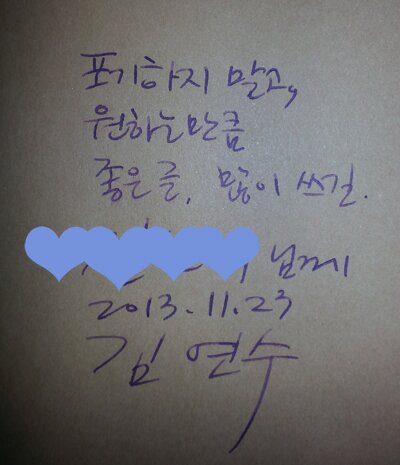 포기하지 말고,
원하는만큼
좋은 글, 많이 쓰길.
님께
2013.11.23
김연수